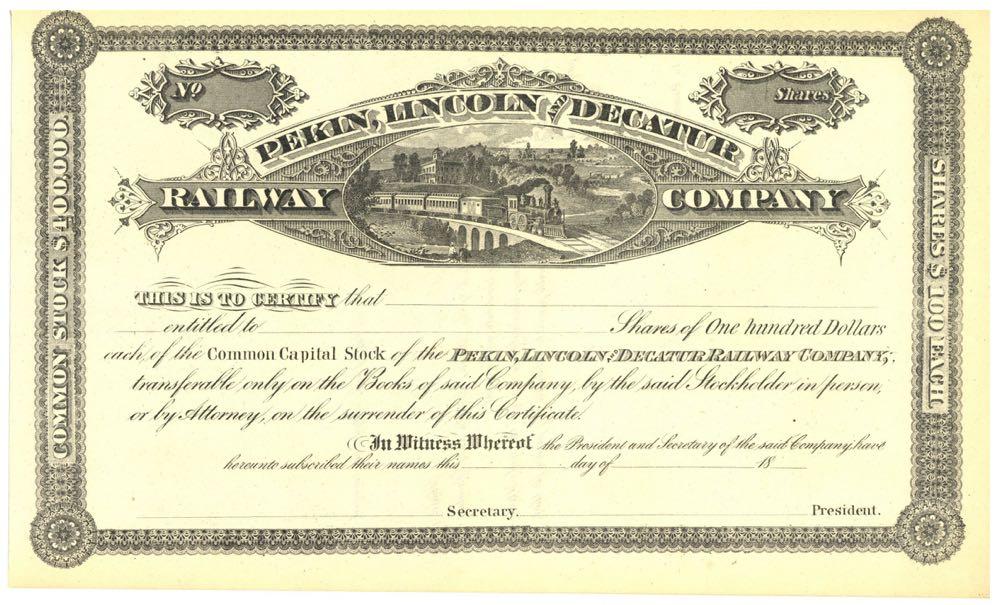 No
Shares
PEKIN, LINCOLN AND DECATUR
RAILWAY COMPANY
COMMON STOCK $100,000.
SHARES $100 EACH.
THIS IS TO CERTIFY that
entitled to Shares of One hundred Dollars
each, of the Common Capital Stock of the PEKIN, LINCOLN AND DECATUR RAILWAY COMPANY,
transferable only on the Books of said Company, by the said Stockholder in person,
or by Attorney, on the surrender of this Certificate.
In Witness Whereof the President and Secretary of the said Company have
hereunto subscribed their names this day of 18
Secretary. President.